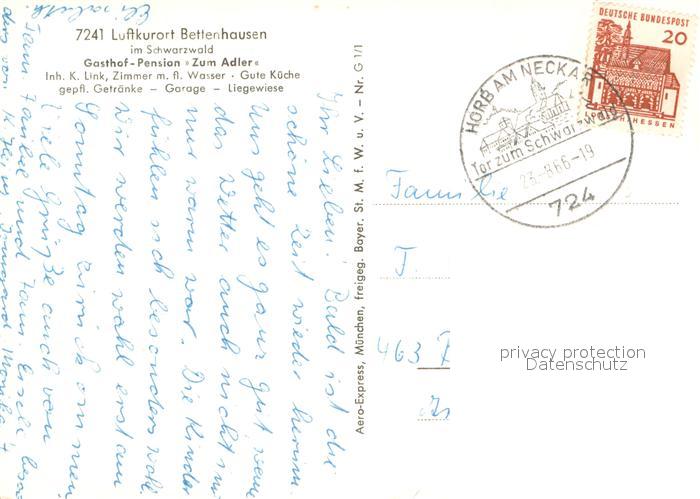 7241 Luftkurort Bettenhausen
im Schwarzwald
Gasthof-Pension »Zum Adler«
Inh. K. Link, Zimmer m. fl. Wasser · Gute Küche
gepfl. Getränke – Garage – Liegewiese
Ihr Lieben! Bald ist die
schöne Zeit wieder herum.
Uns geht es ganz gut wenn
das Wetter auch nicht
nur warm war. Die Kinder
fühlen sich besonders wohl.
Wir werden wohl erst am
Sonntag zurück kommen
Viele Grüße auch von
Fam. und Fam.
Elisabeth
Aero-Express, München, freigeg. Bayer. St. M. f. W. u. V. – Nr. G 1/1
DEUTSCHE BUNDESPOST
20
HESSEN
HORB AM NECKAR
Tor zum Schwarzwald
23.-8.66-19
724
Familie
T.
463
privacy protection
Datenschutz